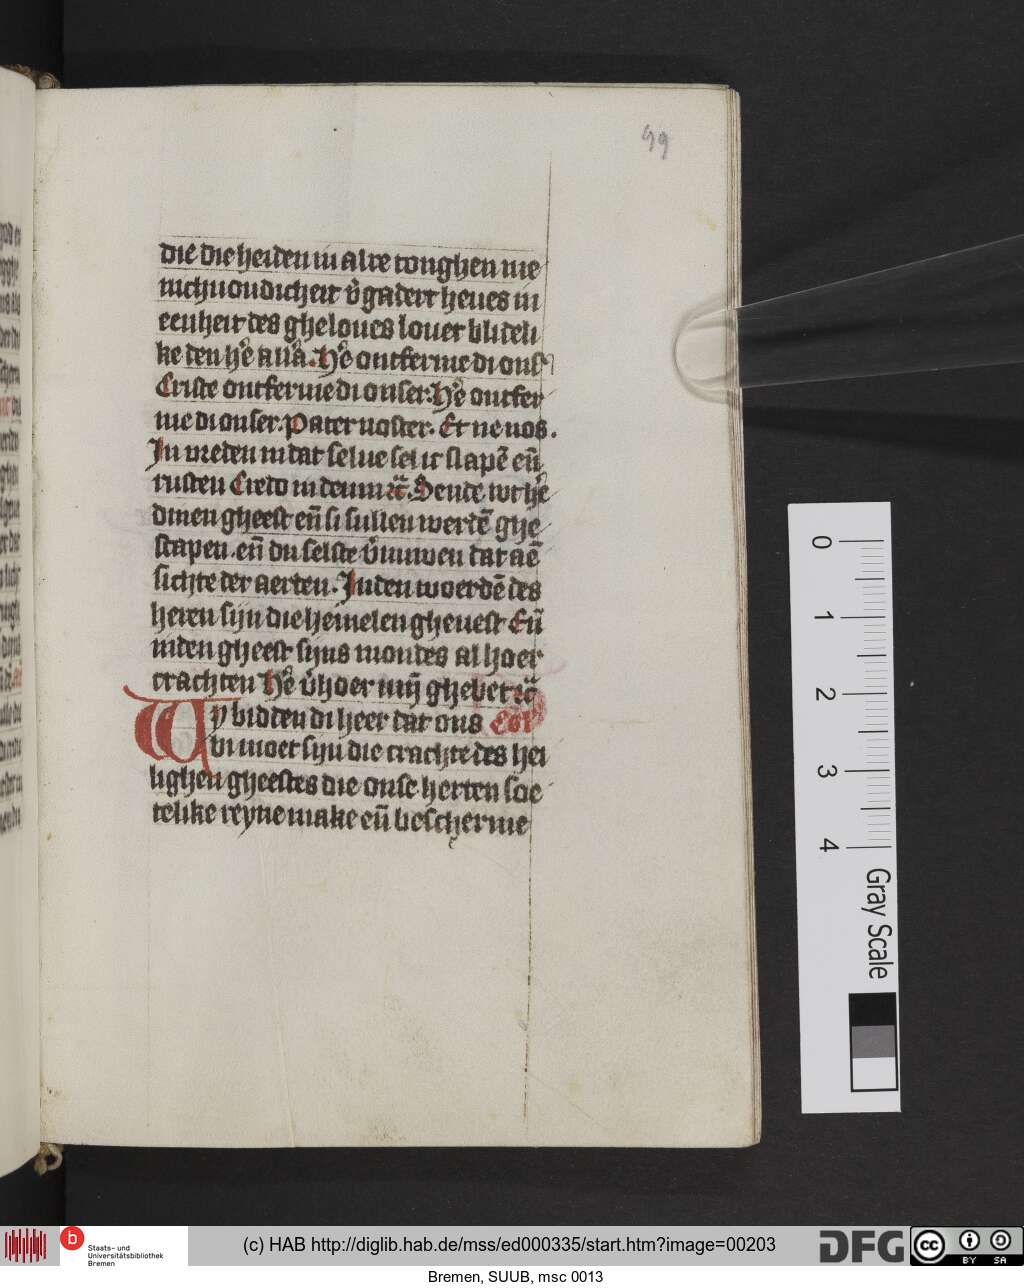 99
die die heiden in alre tonghen me
nichuoudicheit v̊gadert heues in
eenheit des gheloues louet blideli
ke den hẽ allã. Hẽ ontferme di onser
Criste ontferme di onser. Hẽ ontfer
me di onser. Pater noster. Et ne nos.
In vreden in dat selue sel ic slapẽ eñ
rusten Credo in deum zc̃. Sende wt hẽ
dinen gheest eñ si sullen werdẽ ghe
scapen. eñ du selste v̊nuwen dat aẽ
sichte der aerden. In den woerdẽ des
heren sijn die hemelen gheuest Eñ
inden gheest sijns mondes al hoer
crachten Hẽ v̊hoer mij ghebet zc̃
Wy bidden di heer dat ons Col'
bi moet sijn die crachte des hei
lighen gheestes die onse herten soe
telike reyne make eñ bescherme
0
1
2
3
4
Gray Scale
b
Staats- und
Universitätsbibliothek
Bremen
(c) HAB http://diglib.hab.de/mss/ed000335/start.htm?image=00203
DFG
cc
BY
SA
Bremen, SUUB, msc 0013